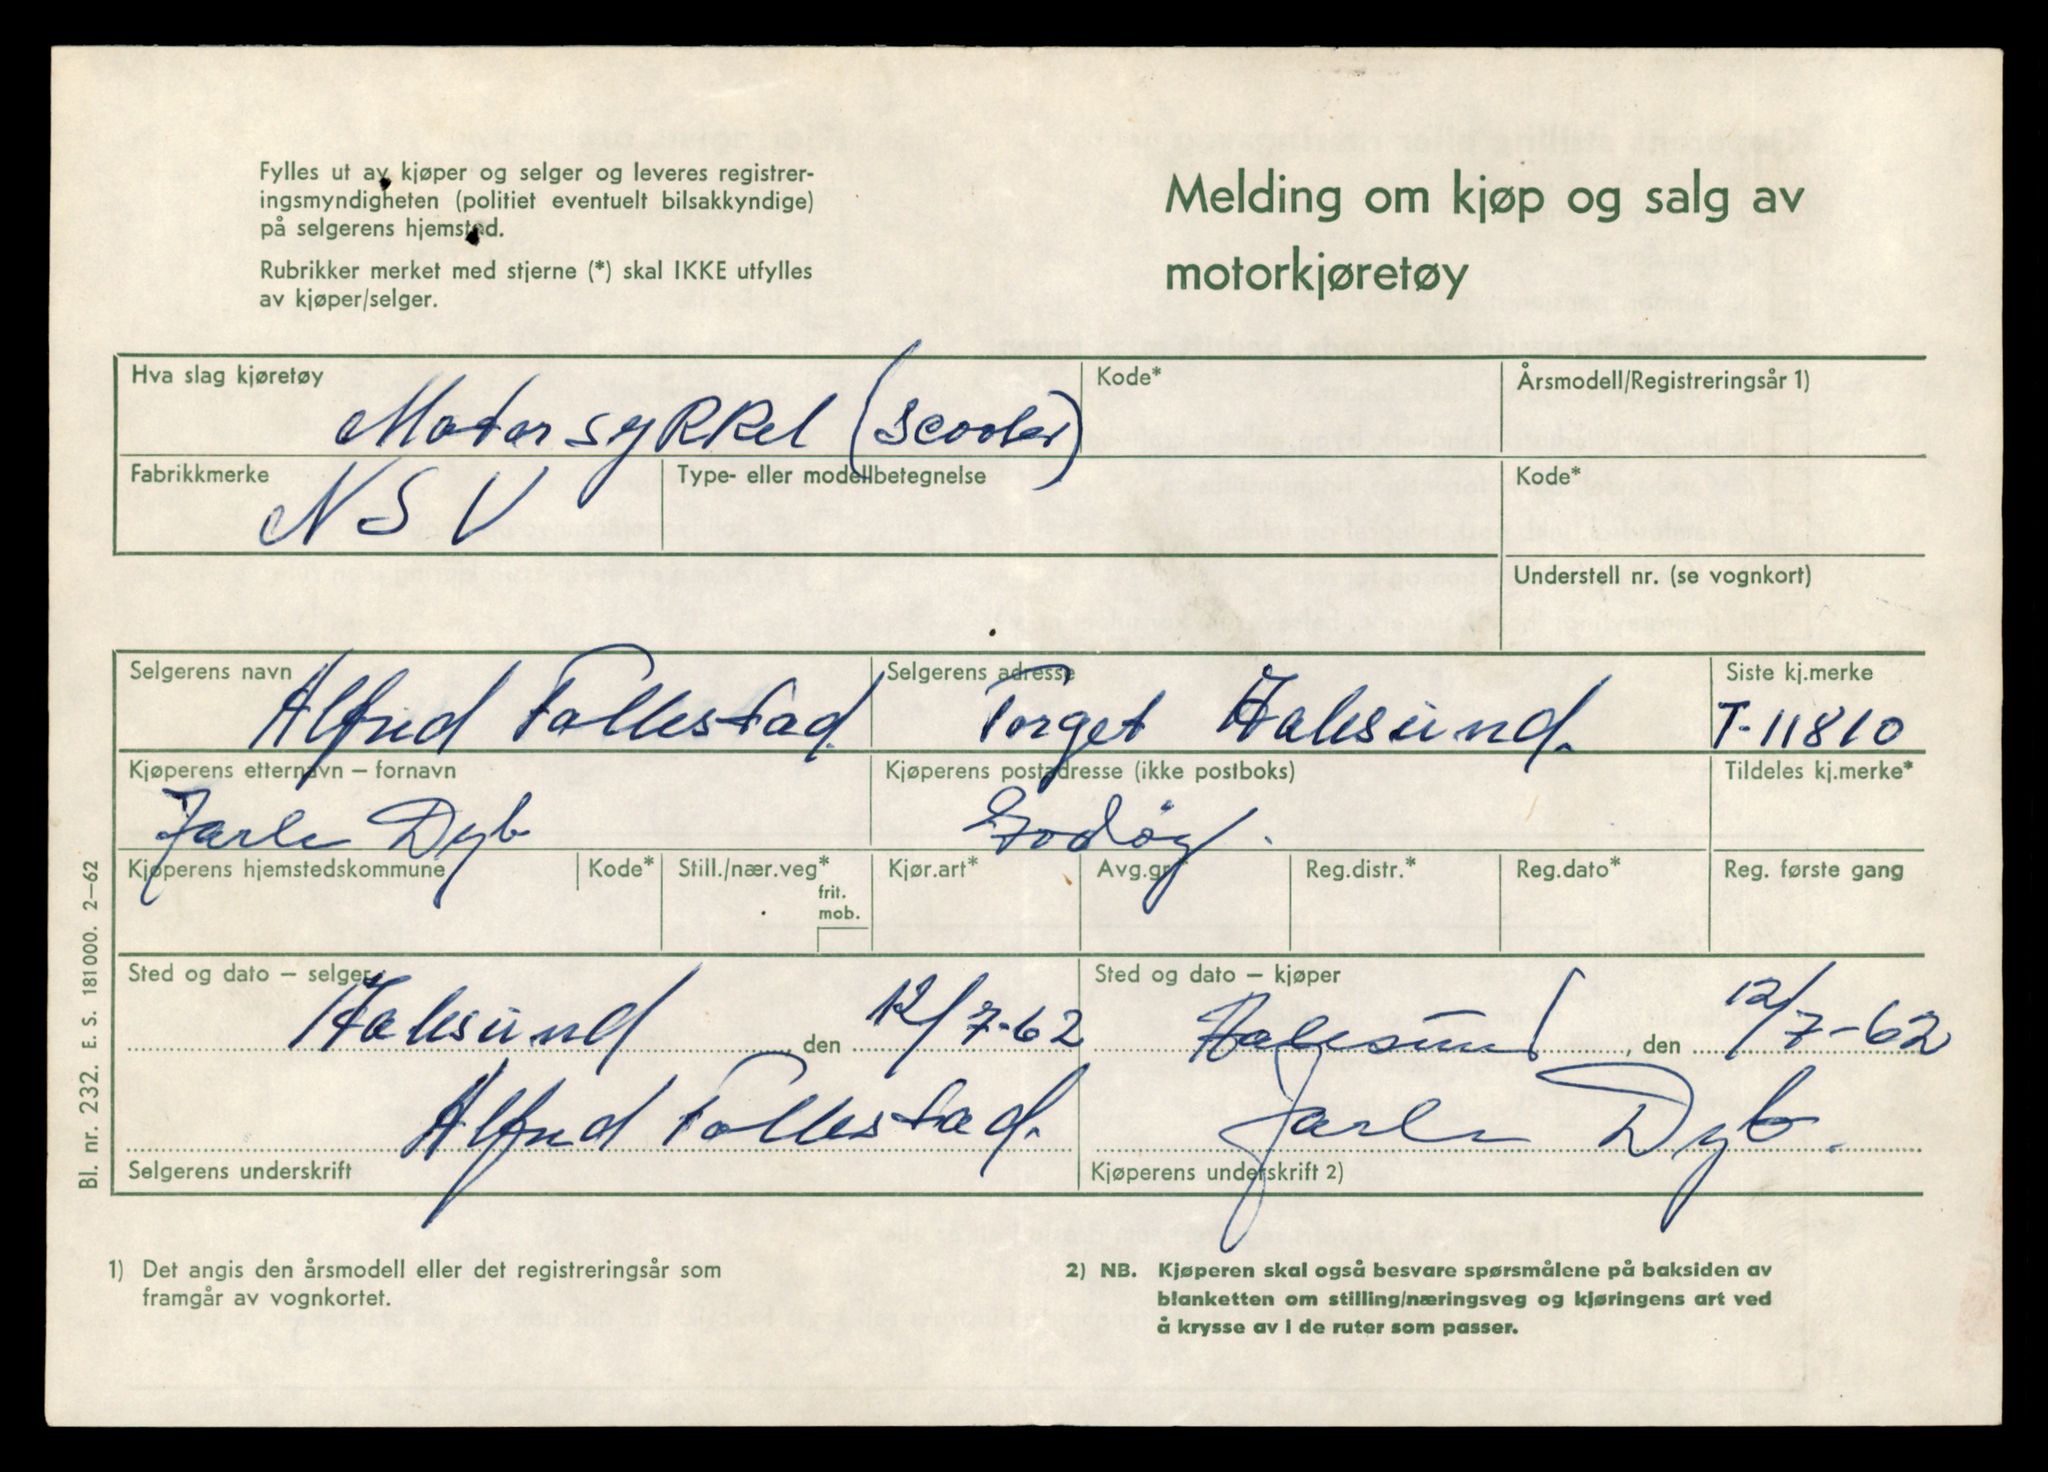 Fylles ut av kjøper og selger og leveres registrer-
ingsmyndigheten (politiet eventuelt bilsakkyndige)
på selgerens hjemsted.
Rubrikker merket med stjerne (*) skal IKKE utfylles
av kjøper/selger.
Melding om kjøp og salg av
motorkjøretøy
Hva slag kjøretøy
Motorsykkel (scooter)
Kode*
Årsmodell/Registreringsår 1)
Fabrikkmerke
NSV
Type- eller modellbetegnelse
Kode*
Understell nr. (se vognkort)
Selgerens navn
Alfred Follestad.
Selgerens adresse
Torget Aalesund.
Siste kj.merke
T-11810
Kjøperens etternavn – fornavn
Jarle Dyb
Kjøperens postadresse (ikke postboks)
Godøy.
Tildeles kj.merke*
Kjøperens hjemstedskommune
Kode*
Still./nær.veg*
frit.
mob.
Kjør.art*
Avg.gr
Reg.distr.*
Reg.dato*
Reg. første gang
Sted og dato – selger
Aalesund den 12/7-62
Sted og dato – kjøper
Aalesund, den 12/7-62
Alfred Follestad.
Selgerens underskrift
Jarle Dyb.
Kjøperens underskrift 2)
Bl. nr. 232. E. S. 181 000. 2–62
1) Det angis den årsmodell eller det registreringsår som
framgår av vognkortet.
2) NB. Kjøperen skal også besvare spørsmålene på baksiden av
blanketten om stilling/næringsveg og kjøringens art ved
å krysse av i de ruter som passer.